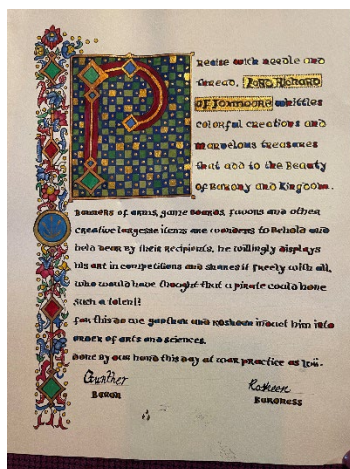 Precise with needle and
thread, Lord Richard
of Foxmoore whittles
colorful creations and
marvelous treasures
that add to the Beauty
of Barony and Kingdom.
Banners of arms, game boards, favors and other
creative largesse items are wonders to Behold and
held dear by their recipients. he willingly displays
his art in competitions and shares it freely with all.
who would have thought that a pirate could hone
such a talent?
for this do we gunther and Rosheen induct him into
order of arts and sciences.
done by our hand this day at war practice as
Gunther
Rosheen
Baron
Baroness